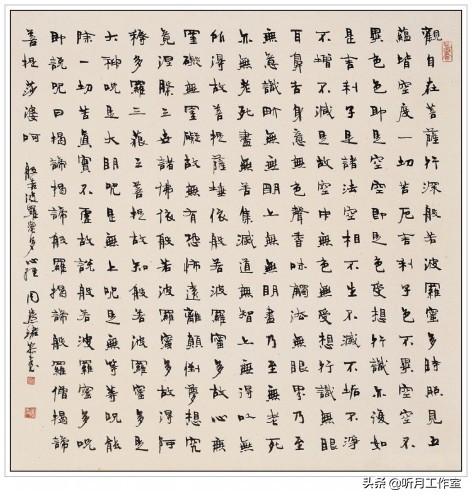 觀自在菩薩行深般若波羅蜜多時照見五
蘊皆空度一切苦厄舍利子色不異空空不
異色色即是空空即是色受想行識亦復如
是舍利子是諸法空相不生不滅不垢不淨
不增不減是故空中無色無受想行識無眼
耳鼻舌身意無色聲香味觸法無眼界乃至
無意識界無無明亦無無明盡乃至無老死
亦無老死盡無苦集滅道無智亦無得以無
所得故菩提薩埵依般若波羅蜜多故心無
罣礙無罣礙故無有恐怖遠離顛倒夢想究
竟涅槃三世諸佛依般若波羅蜜多故得阿
耨多羅三藐三菩提故知般若波羅蜜多是
大神呪是大明呪是無上呪是無等等呪能
除一切苦真實不虛故說般若波羅蜜多呪
即說呪曰揭諦揭諦般羅揭諦般羅僧揭諦
菩提莎婆呵 般若波羅蜜多心經 周
头条 @听月工作室